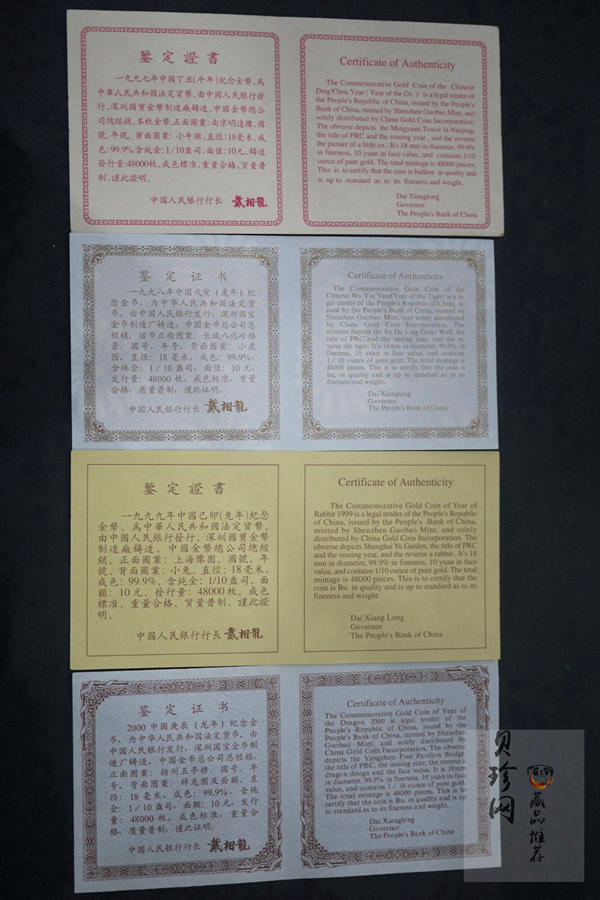 鑒定證書
一九九七年中國丁丑(牛年)紀念金幣,爲
中華人民共和國法定貨幣,由中國人民銀行發
行,深圳國寶金幣制造廠鑄造,中國金幣總公
司總經銷,本枚金幣,正面圖案:南京明遠樓,國
號,年號,背面圖案:小牛圖,直徑:18毫米,成
色:99.9%,含純金:1/10盎司,面值:10元,鑄造
發行量:48000枚,成色標准,重量合格,質量普
制,謹此證明。
中國人民銀行行長 戴相龍
Certificate of Authenticity
The Commemorative Gold Coin of the Chinese
Ding Chou Year (Year of the Ox ) is a legal tender of
the People's Republic of China, issued by the People's
Bank of China, minted by Shenzhen Guobao Mint, and
solely distributed by China Gold Coin Incorporation.
The obverse depicts the Mingyuan Tower in Nanjing,
the title of PRC and the issuing year , and the reverse
the picture of a little ox . It's 18 mm in diameter, 99.9%
in fineness, 10 yuan in face value, and contains 1/10
ounce of pure gold. The total mintage is 48000 pieces.
This is to certify that the coin is bullion in quality and
is up to standard as to its fineness and weight.
Dai Xianglong
Governor
The People's Bank of China
鉴定证书
一九九八年中国戊寅(虎年)纪
念金币,为中华人民共和国法定货
币,由中国人民银行发行,深圳国宝
金币制造厂铸造,中国金币总公司总
经销。该币正面图案:长城八达岭楼
景、国号、年号,背面图案:小虎
图,直径:18 毫米,成色:99.9%,
含纯金:1/10 盎司,面值:10 元,
发行量:48000 枚,成色标准,重量
合格,质量普制,谨此证明。
中国人民银行行长 戴相龙
Certificate of Authenticity
The Commemorative Gold Coin of the
Chinese Wu Yin Year(Year of the Tiger) is a
legal tender of the People's Republic of China, is
sued by the People's Bank of China, minted by
Shenzhen Guobao Mint, and solely distributed
by China Gold Coin Incorporation. The
obverse depicts the Ba Da Ling Great Wall, the
title of PRC and the issuing year, and the re
verse the tiger. It's 18mm in diameter, 99.9% in
fineness, 10 yuan in face value, and contains
1/10 ounce of pure gold. The total mintage is
48000 pieces. This is to certify that the coin is
bu. in quality and is up to standard as to its
fineness and weight.
Dai Xianglong
Governor
The People's Bank of China
鑒定證書
一九九九年中國己卯(兔年)紀念
金幣、爲中華人民共和國法定貨幣。
由中國人民銀行發行,深圳國寶金幣
制造廠鑄造,中國金幣總公司總經
銷。正面圖案:上海豫園,國號,年
號,背面圖案:小兔,直徑:18毫米,
成色:99.9%,含純金:1/10 盎司,面
額:10元,發行量:48000枚,成色
標准,重量合格,質量普制、謹此證
明。
中國人民銀行行長 戴相龍
Certificate of Authenticity
The Commemorative Gold Coin of Year of
Rabbit 1999 is a legal tender of the People's Republic
of China, issued by the People's Bank of China,
minted by Shenzhen Guobao Mint, and solely
distributed by China Gold Coin Incorporation. The
obverse depicts Shanghai Yu Garden, the title of PRC
and the issuing year, and the reverse a rabbit . It's 18
mm in diameter, 99.9% in fineness, 10 yuan in face
value, and contains 1/10 ounce of pure gold. The total
mintage is 48000 pieces. This is to certify that the
coin is Bu. in quality and is up to standard as to its
fineness and weight.
Dai Xiang Long
Governor
The People's Bank of China
鉴定证书
2000 中国庚辰(龙年)纪念金
币,为中华人民共和国法定货币,由
中国人民银行发行,深圳国宝金币制
造厂铸造,中国金币总公司总经销。
正面图案:扬州五亭桥、国号、年
号,背面图案:祥龙图及面额,直
径:18 毫米,成色:99.9%,含纯
金:1/10 盎司,面额:10 元,发行
量:48000 枚,成色标准,重量合
格、质量普制,谨此证明。
中国人民银行行长 戴相龙
Certificate of Authenticity
The Commemorative Gold Coin of Year of
the Dragon 2000 is legal tender of the
People's Republic of China, issued by the
People's Bank of China, minted by Shenzhen
Guobao Mint, and solely distributed by
China Gold Coin Incorporation. The obverse
depicts the Yangzhou Five Pavilion Bridge,
the title of PRC, the issuing year, the reverse a
dragon design and the face value. It's 18mm in
diameter, 99.9% in fineness, 10 yuan in face
value, and contains 1/10 ounce of pure gold.
The total mintage is 48000 pieces. This is to
certify that the coin is Bu. in quality and is up
to standard as to its fineness and weight.
Dai Xianglong
Governor
The People's Bank of China
贝珍网
藏品
推荐